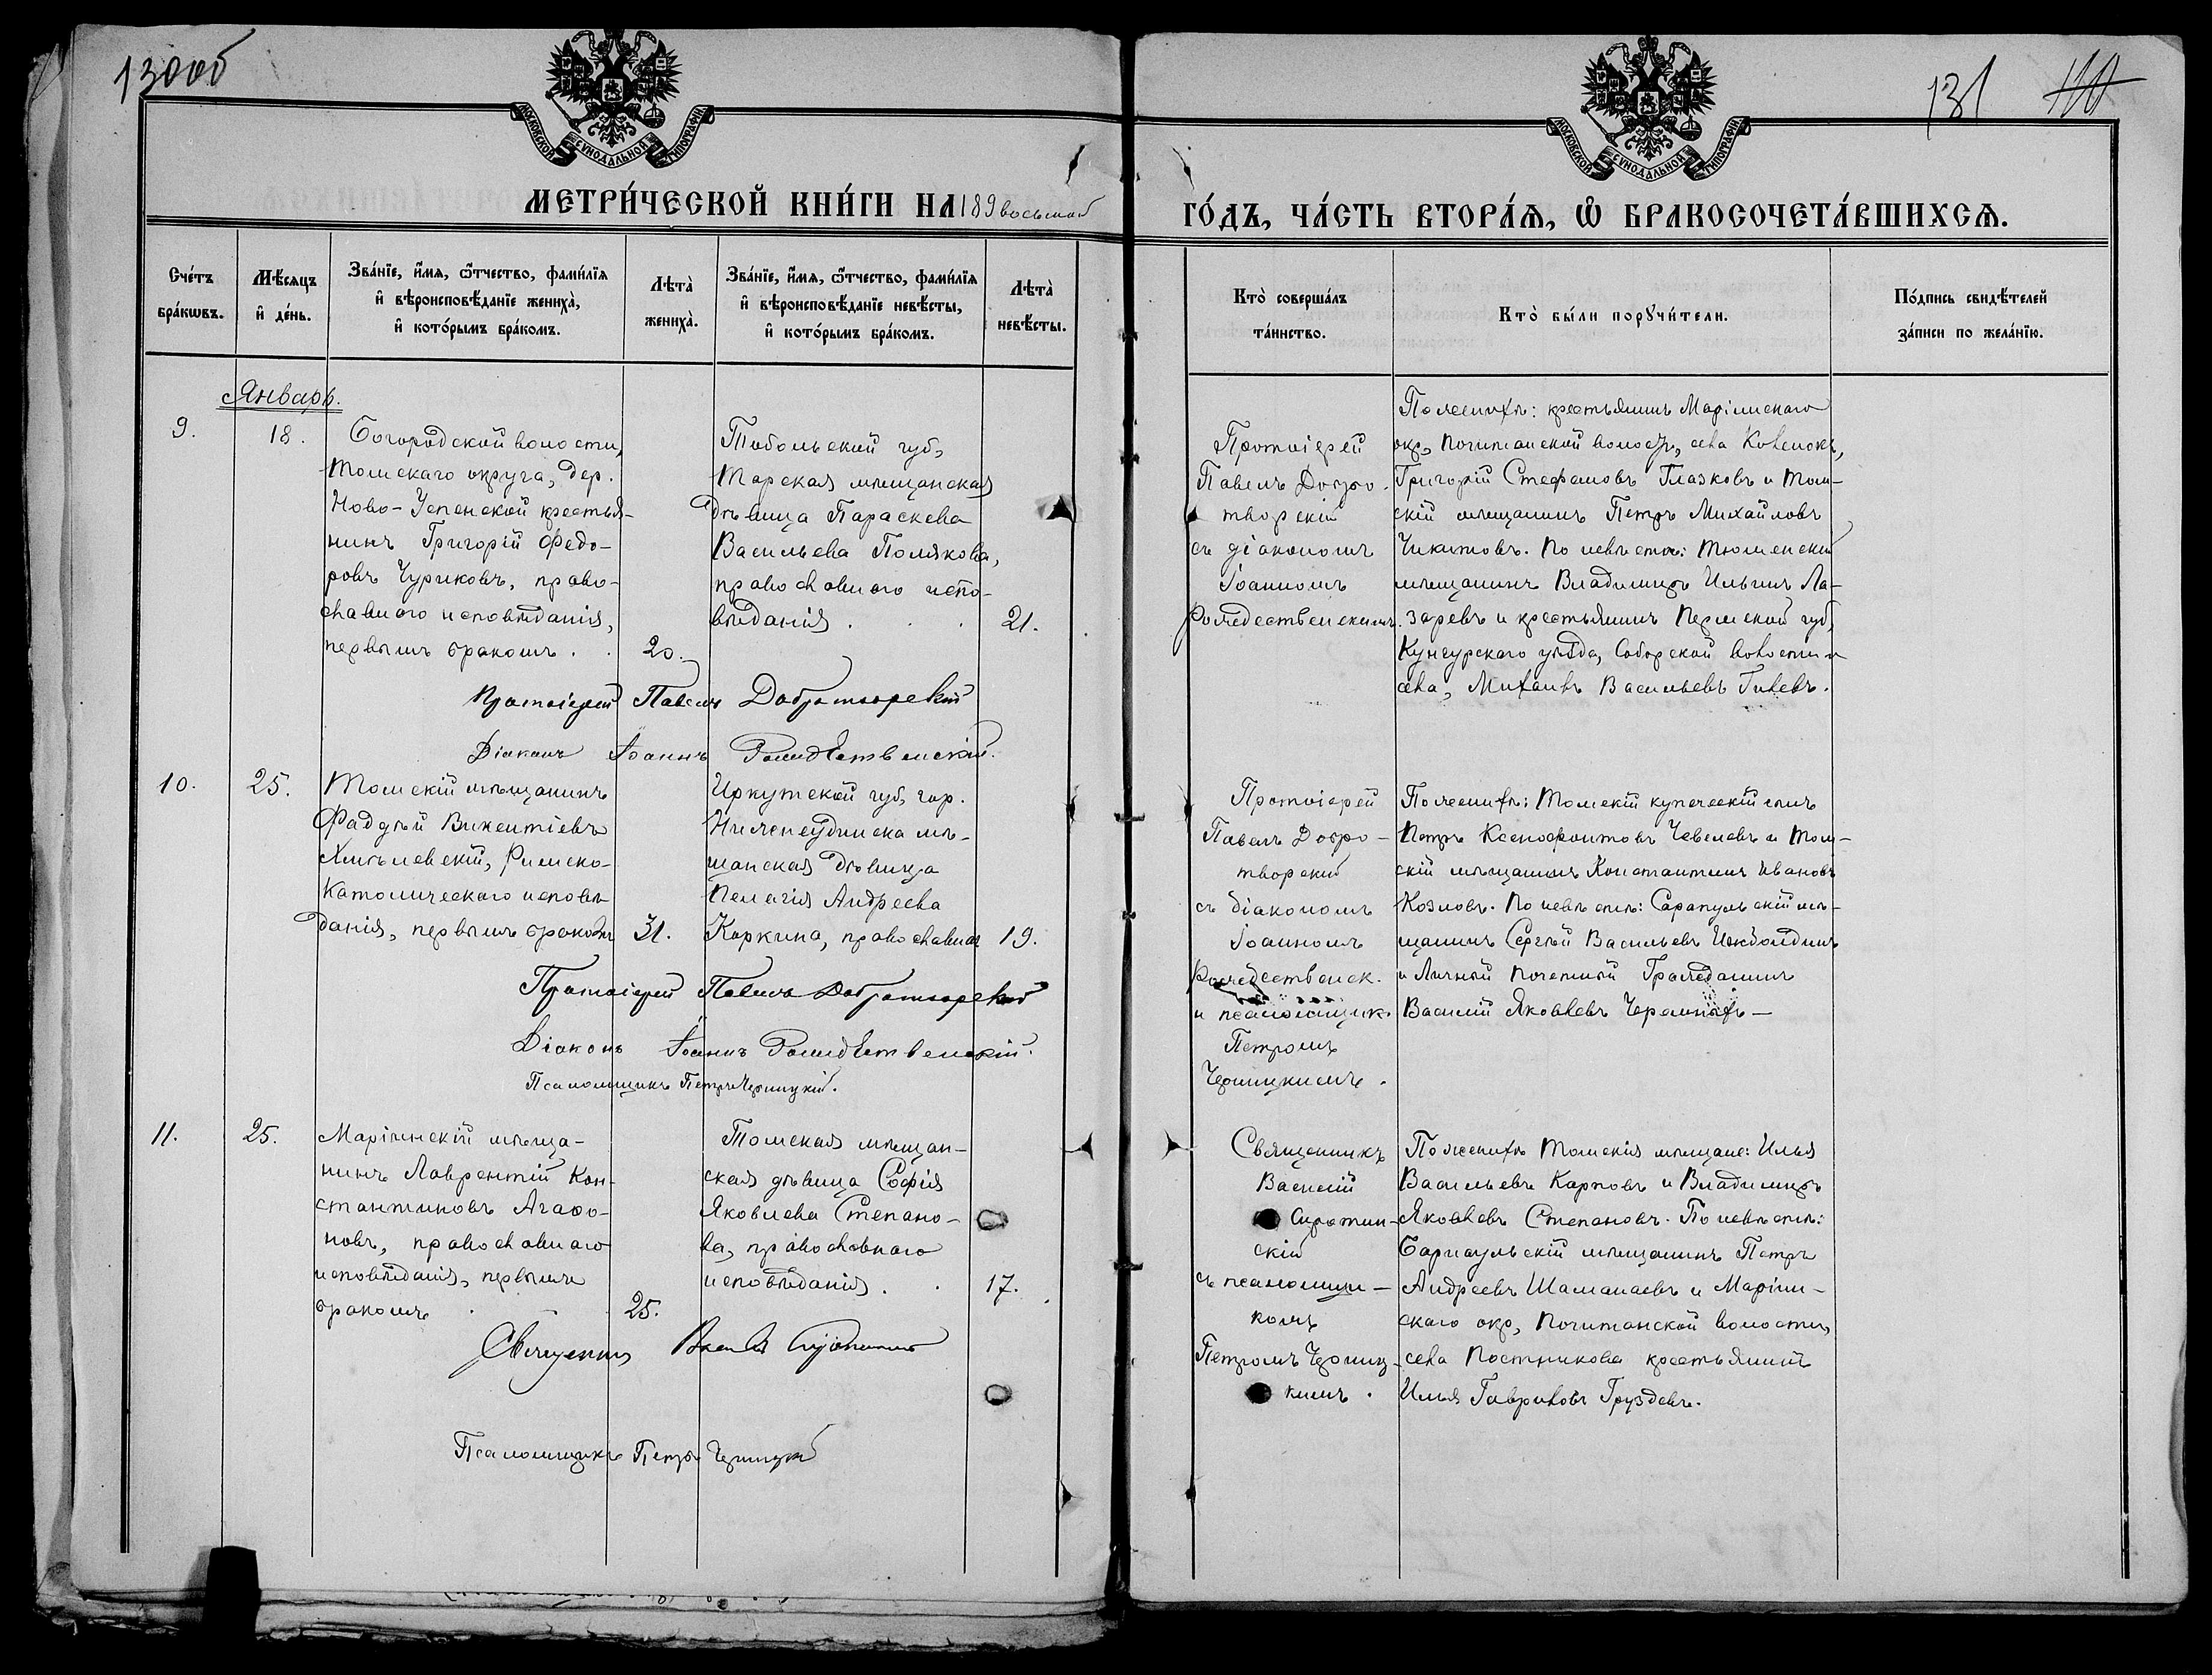 130об
131
МОСКОВСКОЙ СѴНОДАЛЬНОЙ ТИПОГРАФІИ
МОСКОВСКОЙ СѴНОДАЛЬНОЙ ТИПОГРАФІИ
МЕТРИ́ЧЕСКОЙ КНИ́ГИ НА 189восьмой
ГО́ДЪ, ЧА́СТЬ ВТОРА́Ѧ, Ѿ БРАКОСОЧЕТА́ВШИХСѦ.
Сче́тъ
бра́кѡвъ.
Мѣ́сяцъ
и҆ де́нь.
Зва́нїе, и҆́мѧ, ѻ҆́тчество, фами́лїѧ
и҆ вѣроисповѣ́данїе жениха̀,
и҆ кото́рымъ бра́комъ.
Лѣта̀
жениха̀.
Зва́нїе, и҆́мѧ, ѻ҆́тчество, фами́лїѧ
и҆ вѣроисповѣ́данїе невѣ́сты,
и҆ кото́рымъ бра́комъ.
Лѣта̀
невѣ́сты.
Кто̀ соверша́лъ
та́инство.
Кто̀ бы́ли порꙋчи́тели.
По́дпись свидѣ́телей
за́писи по жела́нїю.
Январь.
9.
18.
Богородской волости,
Томскаго округа, дер.
Ново-Успенской крестья-
нинъ Григорій Федо-
ровъ Чуриковъ, право-
славнаго исповѣданія,
первымъ бракомъ . .
20.
Тобольской губ,
Тарская мѣщанская
дѣвица Параскева
Васильева Полякова,
православнаго испо-
вѣданія . . .
21.
Протоіерей
Павелъ Добро-
творскій
съ діакономъ
Іоанномъ
Рождественскимъ.
По женихѣ: крестьянинъ Маріинскаго
окр, Почитанской волости, села
Григорій Стефановъ Глазковъ и Том-
скій мѣщанинъ Петръ Михайловъ
Чикитовъ. По невѣстѣ: Тюменскій
мѣщанинъ Владимиръ Ильинъ Ла-
заревъ и крестьянинъ Пермской губ,
Кунгурскаго уѣзда, волости и
села, Михаилъ Васильевъ Гилевъ.
Протоіерей Павелъ Добротворскій
Діаконъ Іоаннъ Рождественскій.
10.
25.
Томскій мѣщанинъ
Фаддѣй Викентіевъ
Хмѣлевскій, Римско-
Католическаго исповѣ
данія, первымъ бракомъ
31.
Иркутской губ, гор.
Нижнеудинска мѣ-
щанская дѣвица
Пелагія Андреева
Коркина, православная
19.
Протоіерей
Павелъ Добро-
творскій
съ діакономъ
Іоанномъ
Рождественск.
и псаломщик.
Петромъ
Черницкимъ.
По женихѣ: Томскій купеческій сынъ
Петръ Ксенофонтовъ Чевелевъ и Том-
скій мѣщанинъ Константинъ Ивановъ
Козловъ. По невѣстѣ: Сарапульскій мѣ-
щанинъ Сергѣй Васильевъ
и Личный почетный Гражданинъ
Василій Яковлевъ Черемныхъ —
Протоіерей Павелъ Добротворскій
Діаконъ Іоаннъ Рождественскій.
Псаломщикъ Петръ Черницкій.
11.
25.
Маріинскій мѣща-
нинъ Лаврентій Кон-
стантиновъ Агаѳо-
новъ, православнаго
исповѣданія, первымъ
бракомъ .
25.
Томская мѣщан-
ская дѣвица Софія
Яковлева Степано-
ва, православнаго
исповѣданія . .
17.
Священникъ
Василій
Сиротин-
скій
съ псаломщи-
комъ
Петромъ Черниц-
кимъ .
По женихѣ Томскія мѣщане: Илья
Васильевъ Карповъ и Владимиръ
Яковлевъ Степановъ. По невѣстѣ:
Барнаульскій мѣщанинъ Петръ
Андреевъ Шаманаевъ и Маріин-
скаго окр, Почитанской волости,
села Постникова крестьянинъ
Илья Гавриловъ Груздевъ.
Священникъ Василій Сиротинскій
Псаломщикъ Петръ Черницкій